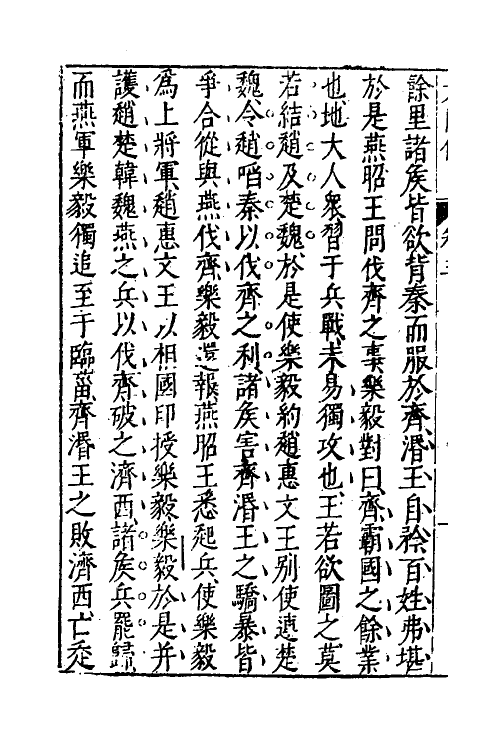 餘里諸矦皆欲背秦而服於齊湣王自矜百姓弗堪
於是燕昭王問伐齊之事樂毅對曰齊霸國之餘業
也地大人眾習于兵戰未易獨攻也王若欲圖之莫
若結趙及楚魏於是使樂毅約趙惠文王別使連楚
魏令趙啗秦以伐齊之利諸矦害齊湣王之驕暴皆
爭合從與燕伐齊樂毅還報燕昭王悉起兵使樂毅
爲上將軍趙惠文王以相國印授樂毅樂毅於是并
護趙楚韓魏燕之兵以伐齊破之濟西諸矦兵罷歸
而燕軍樂毅獨追至于臨菑齊湣王之敗濟西亡走